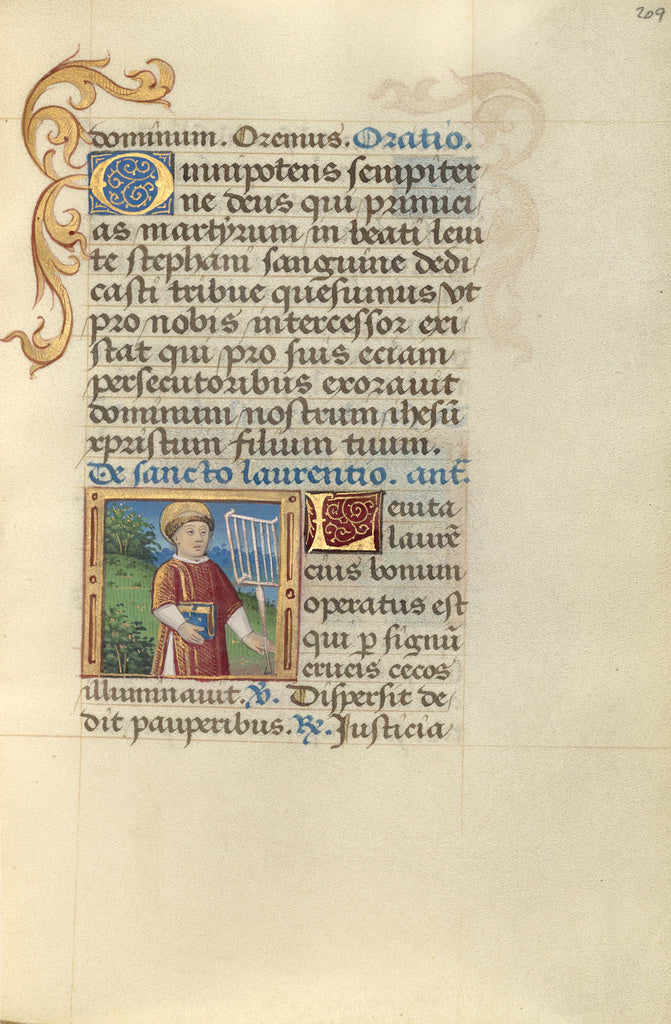 209
dominum. Oremus. Oratio.
Omnipotens sempiter
ne deus qui primici
as martyrum in beati leui
te stephani sanguine dedi
casti tribue quesumus vt
pro nobis intercessor exi
stat qui pro suis eciam
persecutoribus exorauit
dominum nostrum ihesū
xpristum filium tuum.
De sancto laurentio. ant̄.
Leuita
laurē
cius bonum
operatus est
qui p̲ signū
crucis cecos
illuminauit. ℣. Dispersit de
dit pauperibus. ℟. Justicia